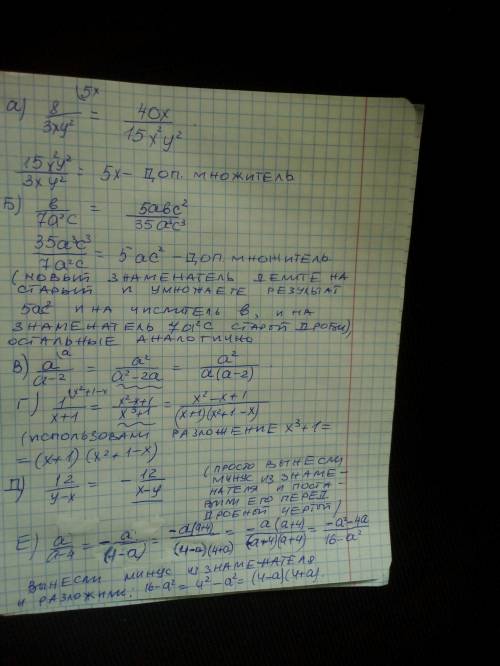 а) 8/3xy² (5x = 40x/15x²y²
15x²y²/3xy² = 5x – доп. множитель
Б) в/7a²c = 5abc²/35a³c³
35a³c³/7a²c = 5ac² – доп. множитель
(новый знаменатель делите на
старый и умножаете результат
5ac² и на числитель в, и на
знаменатель 7a²c старой дроби)
остальные аналогично
В) a/a-2 (a = a²/a²-2a = a²/a(a-2)
Г) 1/x+1 (x²+1-x = x²-x+1/x³+1 = x²-x+1/(x+1)(x²+1-x)
(использовали разложение x³+1=
=(x+1)(x²+1-x)
Д) 12/y-x = - 12/x-y (просто вынесли
минус из знаме-
нателя и поста-
вили его перед
дробной чертой)
Е) a/a-4 = -a/(4-a) = -a(a+4)/(4-a)(4+a) = -a(a+4)/(a+4)(a+4) = -a²-4a/16-a²
вынесли минус из знаменателя
и разложили: 16-a²=4²-a²=(4-a)(4+a).